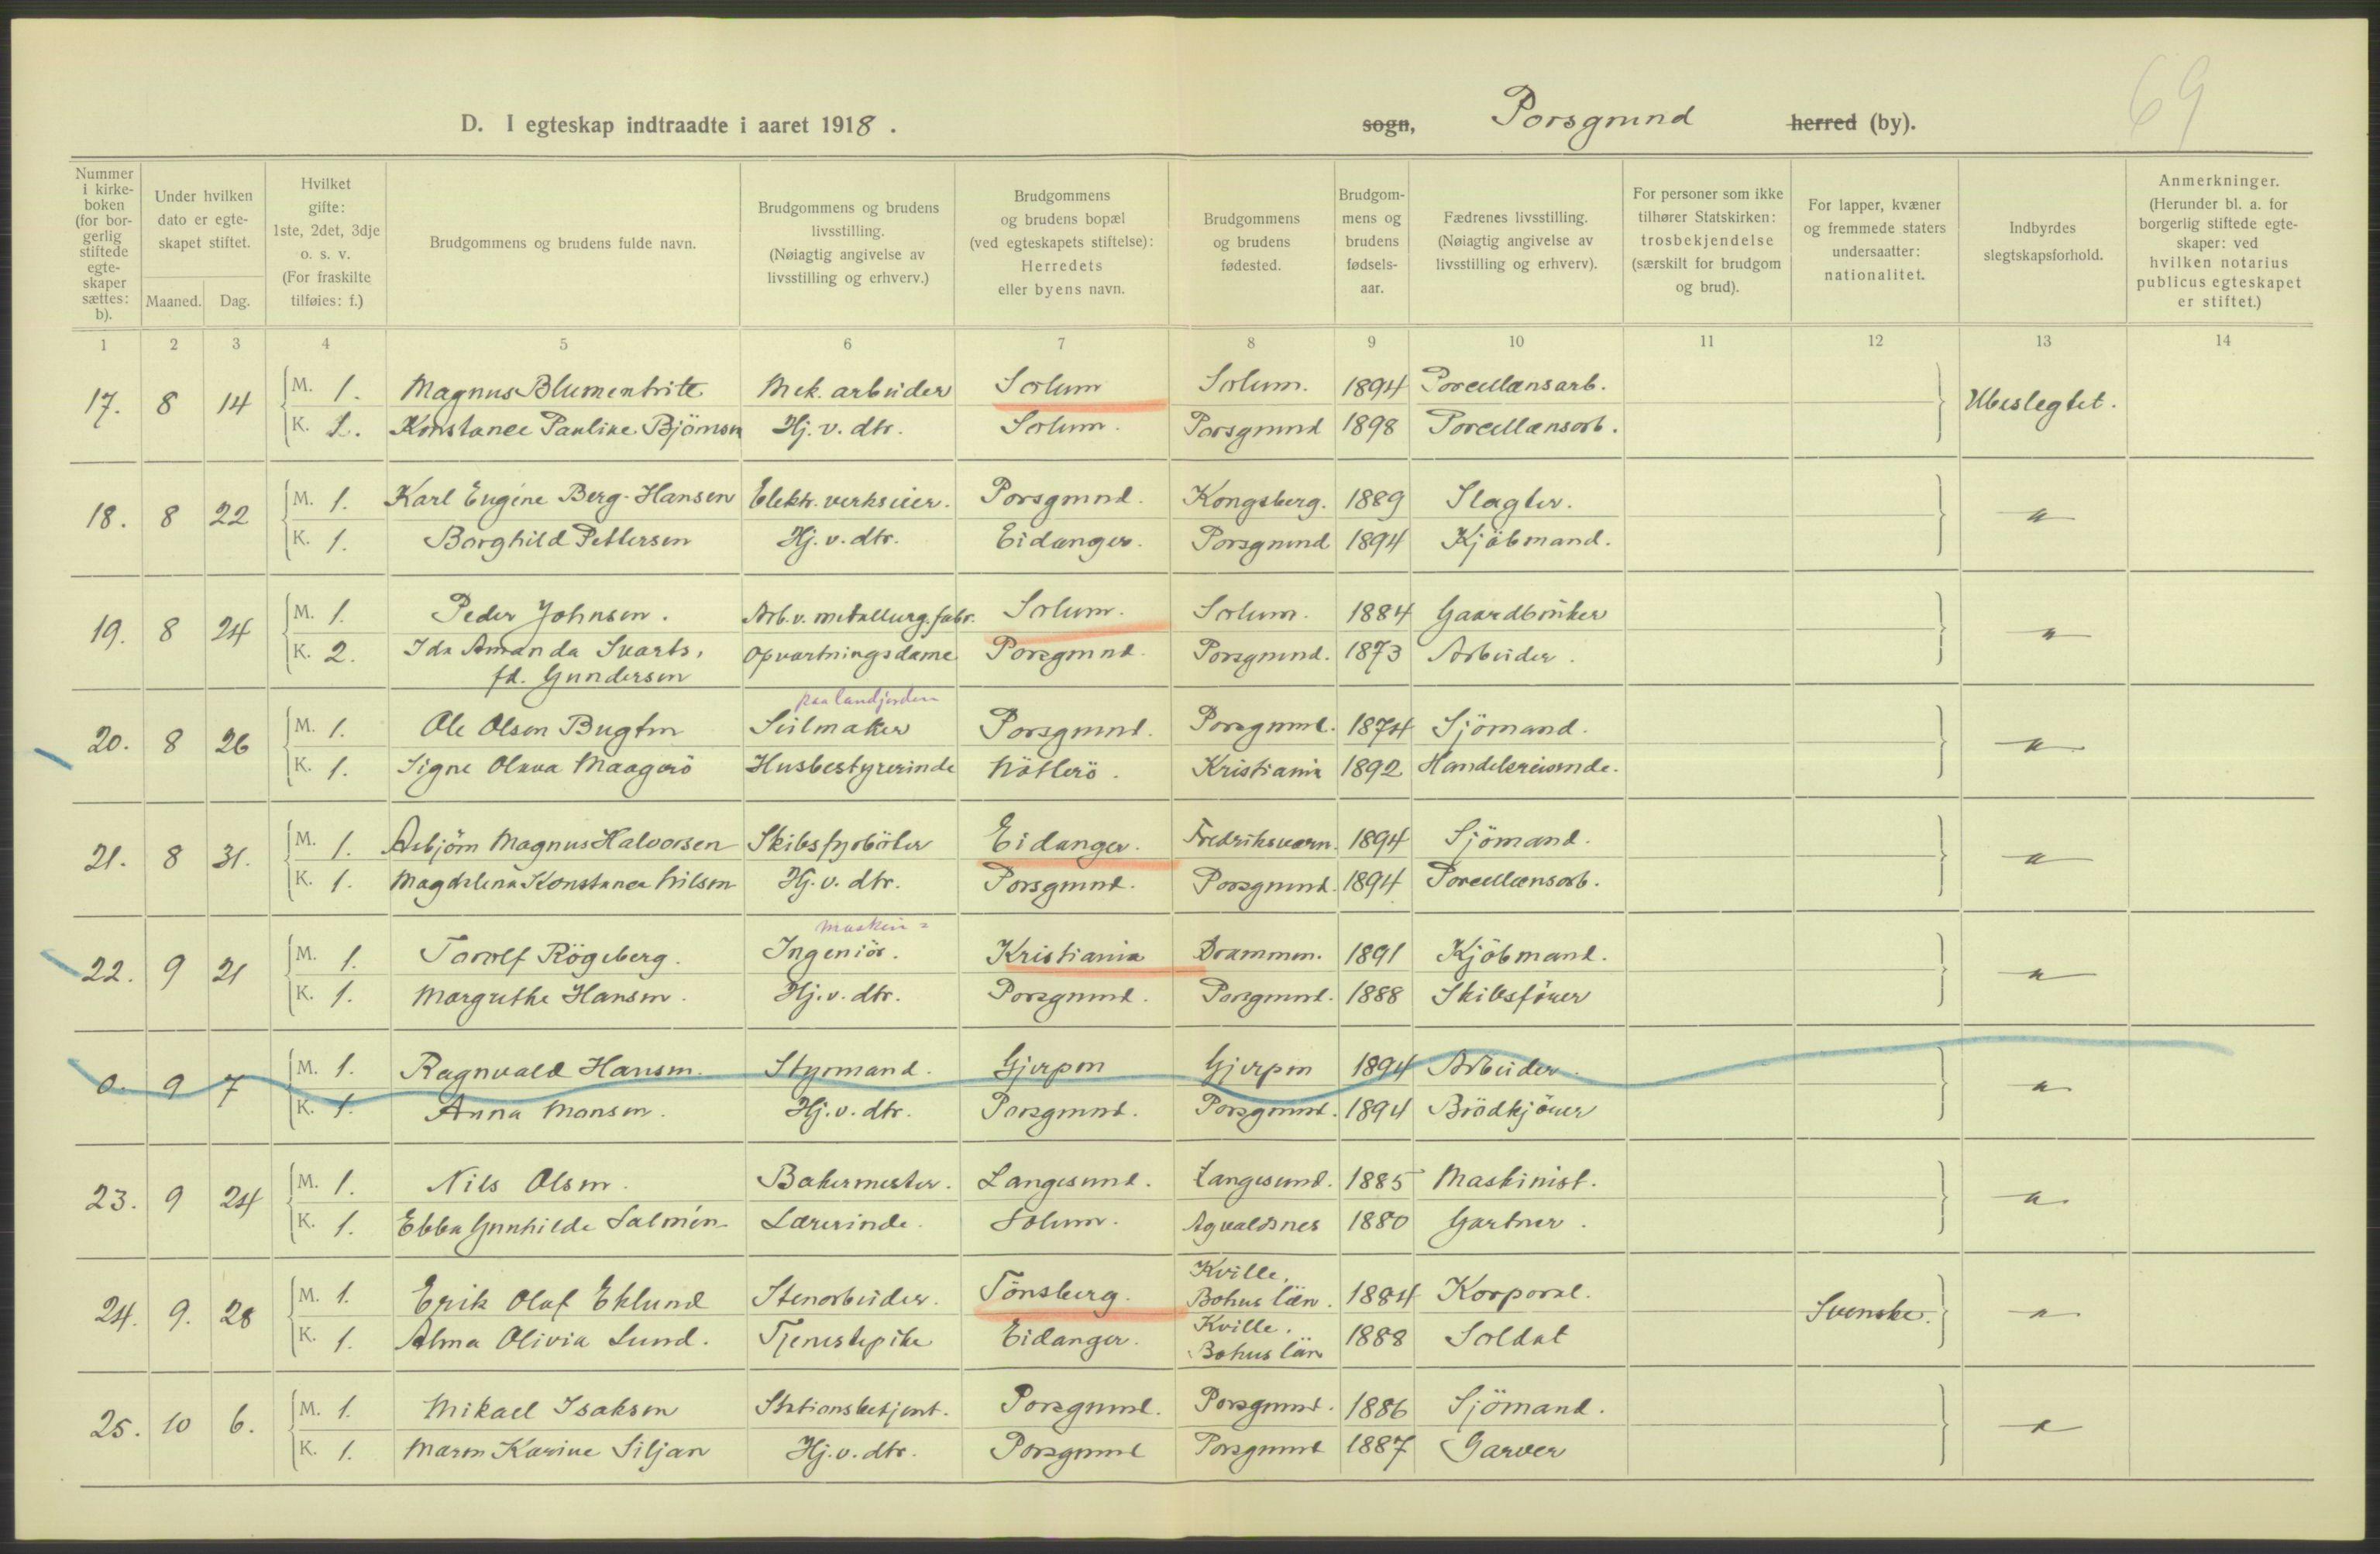 69
D. I egteskap indtraadte i aaret 1918. sogn, Porsgrund herred (by).
Nummer i kirkeboken (for borgerlig stiftede egteskaper sættes: b).
Under hvilken dato er egteskapet stiftet.
Maaned. Dag.
Hvilket gifte: 1ste, 2det, 3dje o. s. v. (For fraskilte tilføies: f.)
Brudgommens og brudens fulde navn.
Brudgommens og brudens livsstilling. (Nøiagtig angivelse av livsstilling og erhverv.)
Brudgommens og brudens bopæl (ved egteskapets stiftelse): Herredets eller byens navn.
Brudgommens og brudens fødested.
Brudgommens og brudens fødselsaar.
Fædrenes livsstilling. (Nøiagtig angivelse av livsstilling og erhverv).
For personer som ikke tilhører Statskirken: trosbekjendelse (særskilt for brudgom og brud).
For lapper, kvæner og fremmede staters undersaatter: nationalitet.
Indbyrdes slegtskapsforhold.
Anmerkninger. (Herunder bl. a. for borgerlig stiftede egteskaper: ved hvilken notarius publicus egteskapet er stiftet.)
1 2 3 4 5 6 7 8 9 10 11 12 13 14
17. 8 14 M. 1. Magnus Blumentritt Mek. arbeider Solum Solum. 1894 Porcellænsarb. Ubeslegtet.
K. 1. Konstance Pauline Björnsen Hj. v. dtr. Solum. Porsgrund 1898 Porcellænsarb.
18. 8 22 M. 1. Karl Eugéne Berg-Hansen Elektr. verkseier. Porsgrund. Kongsberg. 1889 Slagter. "
K. 1. Borghild Pettersen Hj. v. dtr. Eidanger. Porsgrund 1894 Kjöbmand.
19. 8 24 M. 1. Peder Johnsen. Arb. v. metallurg. fabr. Solum. Solum. 1884 Gaardbruker "
K. 2. Ida Amanda Svarts, Opvartningsdame Porsgrund. Porsgrund. 1873 Arbeider.
fd. Gundersen
paa landjorden
20. 8 26 M. 1. Ole Olsen Bugten Seilmaker Porsgrund. Porsgrund. 1874 Sjömand. "
K. 1. Signe Olava Maagerö Husbestyrerinde Nötterö. Kristiania 1892 Handelsreisende.
21. 8 31. M. 1. Asbjörn Magnus Halvorsen Skibsfyrböter Eidanger. Fredriksværn. 1894 Sjömand. "
K. 1. Magdalena Konstance Nilsen Hj. v. dtr. Porsgrund. Porsgrund. 1894 Porcellænsarb.
maskin=
22. 9 21 M. 1. Torolf Rögeberg. Ingeniör. Kristiania Drammen. 1891 Kjöbmand. "
K. 1. Margrethe Hansen. Hj. v. dtr. Porsgrund. Porsgrund. 1888 Skibsförer
0. 9 7 M. 1. Ragnvald Hansen. Styrmand. Gjerpen Gjerpen 1894 Arbeider. "
K. 1. Anna Monsen. Hj. v. dtr. Porsgrund. Porsgrund. 1894 Brödkjörer
23. 9 24 M. 1. Nils Olsen. Bakermester. Langesund. Langesund. 1885 Maskinist. "
K. 1. Ebba Gunhilde Salmén Lærerinde. Solum. Agvaldsnes 1880 Gartner.
24. 9. 28 M. 1. Erik Olaf Eklund Stenarbeider. Tönsberg. Kville, Bohus län. 1884 Korporal. Svenske. "
K. 1. Alma Olivia Lund. Tjenestepike Eidanger. Kville. Bohus län 1888 Soldat
25. 10 6. M. 1. Mikael Isaksen Stationsbetjent. Porsgrund. Porsgrund. 1886 Sjömand. "
K. 1. Maren Karine Siljan Hj. v. dtr. Porsgrund Porsgrund 1887 Garver